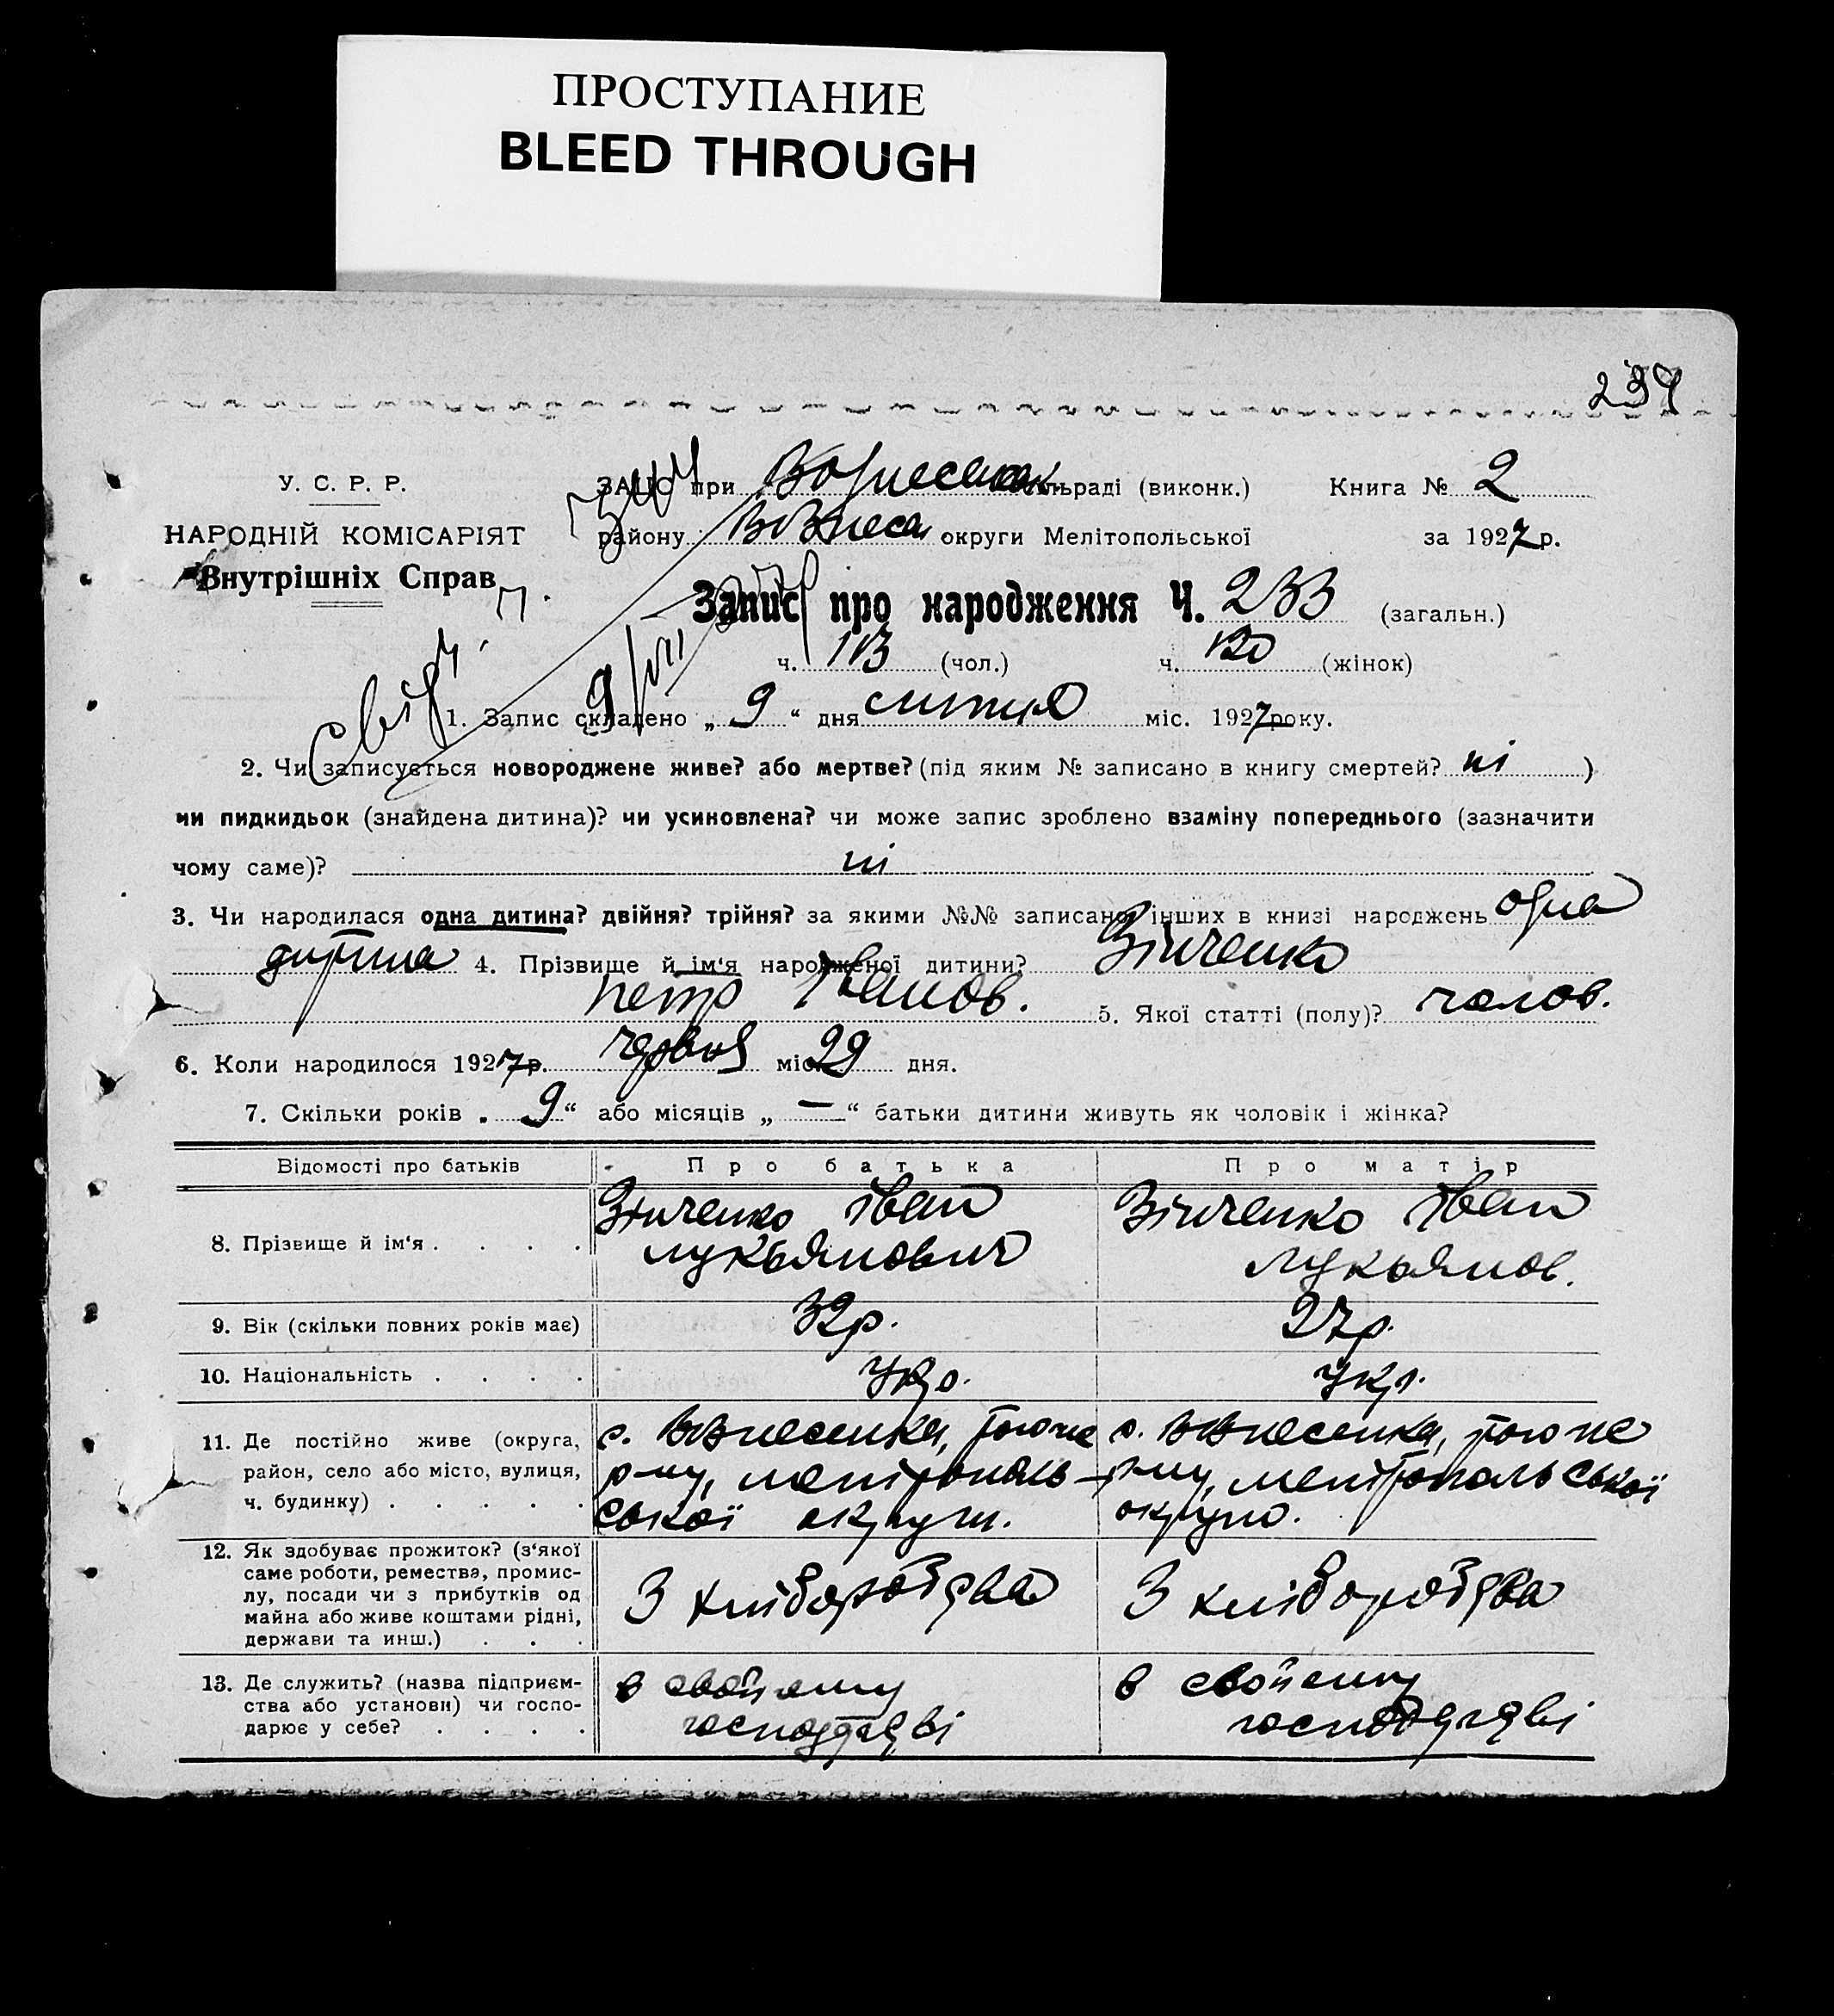 ПРОСТУПАНИЕ
BLEED THROUGH
234
У. С. Р. Р.
НАРОДНІЙ КОМІСАРІЯТ
Внутрішніх Справ
ЗАГС при Вознесенск. сільраді (виконк.) Книга № 2
району Вознесен округи Мелітопольської за 1927 р.
Запис про народження Ч. 233 (загальн.)
ч. 113 (чол.) ч. 120 (жінок)
1. Запис складено „ 9 “ дня липня міс. 1927 року.
2. Чи записується новороджене живе? або мертве? (під яким № записано в книгу смертей? ні )
чи пидкидьок (знайдена дитина)? чи усиновлена? чи може запис зроблено взаміну попереднього (зазначити
чому саме)? ні
3. Чи народилася одна дитина? двійня? трійня? за якими №№ записано інших в книзі народжень одна
дитина 4. Прізвище й ім‘я народженої дитини? Зінченко
Петр Іванов. 5. Якої статті (полу)? чолов.
6. Коли народилося 1927 р. червня міс. 29 дня.
7. Скільки років „ 9 “ або місяців „ — “ батьки дитини живуть як чоловік і жінка?
Відомості про батьків Про батька Про матір
8. Прізвище й ім‘я . . . . Зінченко Іван Зінченко Іван
Лукьянович Лукьянов.
9. Вік (скільки повних років має) 32 р. 27 р.
10. Національність . . . . Укр. Укр.
11. Де постійно живе (округа, с. Вознесенка, того же с. Вознесенка, того же
район, село або місто, вулиця, р-ну, мелітополь- р-ну, мелітопольської
ч. будинку) . . . . . ської округи. округи.
12. Як здобуває прожиток? (з‘якої
саме роботи, ремества, промис-
лу, посади чи з прибутків од З хліборобства З хліборобства
майна або живе коштами рідні,
держави та инш.) . . .
13. Де служить? (назва підприєм- в свойому в свойому
ства або установи) чи госпо-
дарює у себе? . . . . господарстві господарстві